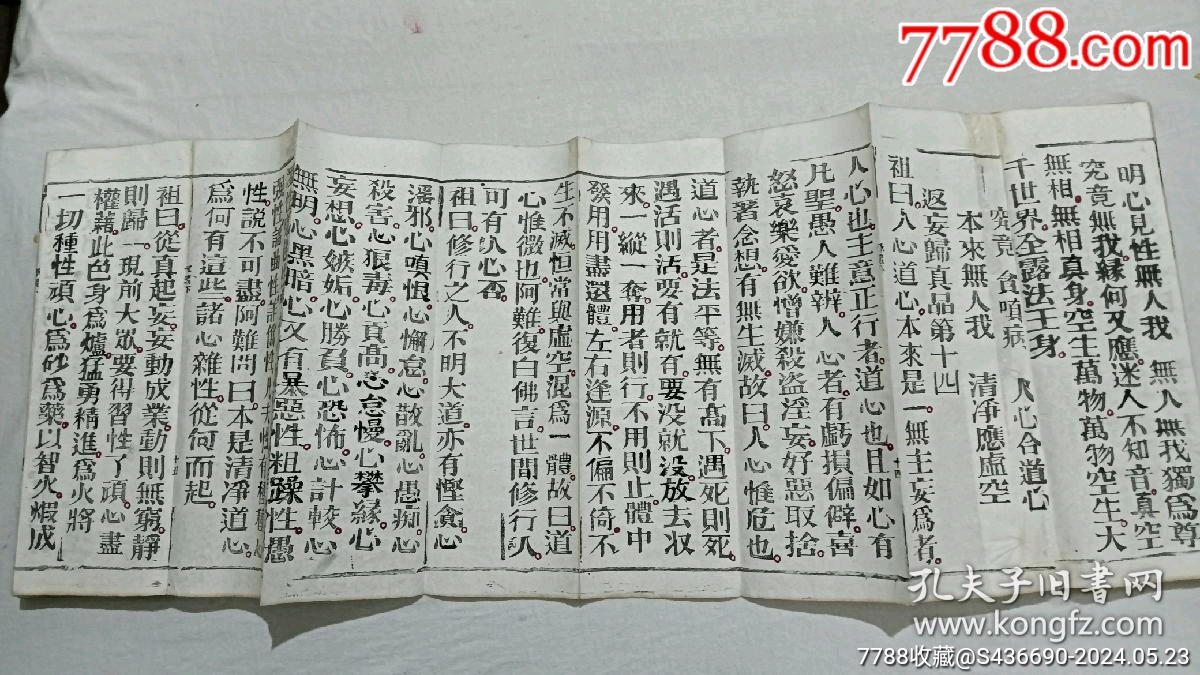 7788.com
明心見性無人我 無人無我獨爲尊
究竟無我緣何又應迷人不知音真空
無相無相真身空生萬物萬物空生大
千世界全露法王身
究竟貪嗔病 人心合道心
本來無人我 清淨應虛空
返妄歸真品第十四
祖曰人心道心本來是一無主妄爲者
人心也主意正行者道心也且如心有
凡聖愚人難辨人心者有虧損偏僻喜
怒哀樂愛欲憎嫌殺盜淫妄好惡取捨
執著念想有無生滅故曰人心惟危也
道心者是法平等無有高下遇死則死
遇活則活要有就有要没就没放去収
來一縱一奪用者則行不用則止體中
發用用盡還體左右逢源不偏不倚不
生不滅恒常與虛空混爲一體故曰道
心惟微也阿難復白佛言世間修行人
可有人心否
祖曰修行之人不明大道亦有慳貪心
滛邪心嗔恨心懈怠心散亂心愚痴心
殺害心狼毒心貢高心怠慢心攀緣心
妄想心嫉妬心勝負心恐怖心計較心
無明心黑暗心又有暴惡性粗躁性愚
性說不可盡阿難問曰本是清淨道心
爲何有這些諸心雜性從何而起
祖曰從真起妄妄動成業動則無窮靜
則歸一現前大眾要得習性了頑心盡
權藉此色身爲爐猛勇精進爲火將
一切種性頑心爲砂爲藥以智火煆成
孔夫子旧书网
www.kongfz.com
7788收藏@S436690-2024.05.23